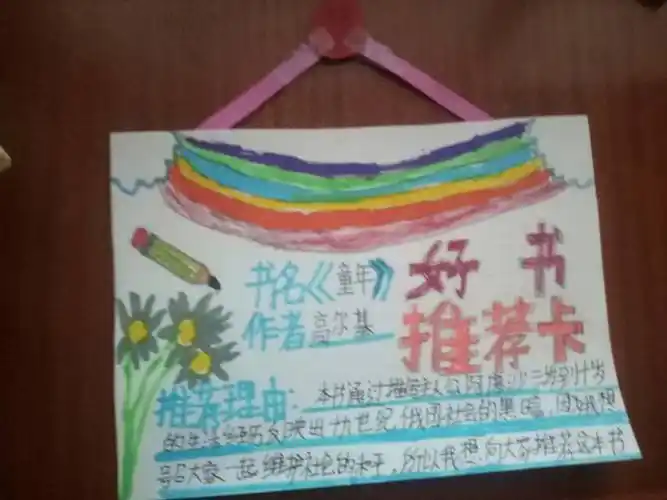 好书
推荐卡
书名《童年》
作者 高尔基
推荐理由：本书通过描写主人公阿廖沙三岁到十岁
的生活经历反映出十九世纪俄国社会的黑暗，因我想
号召大家一起维护社会的和平，所以我想向大家推荐这本书